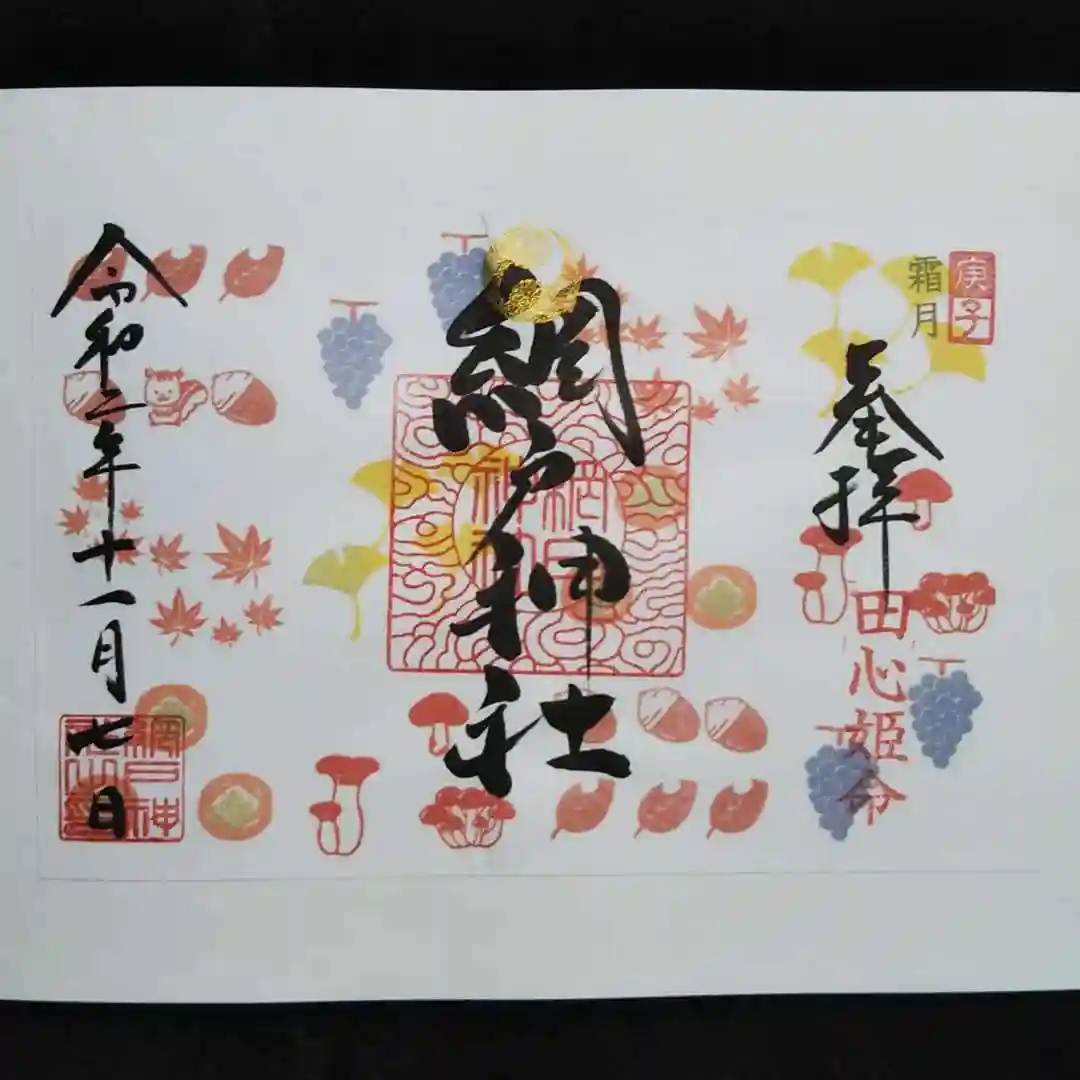 庚子
霜月
奉拝
田心姫命
網戸神社
網戸神社
令和二年十一月七日